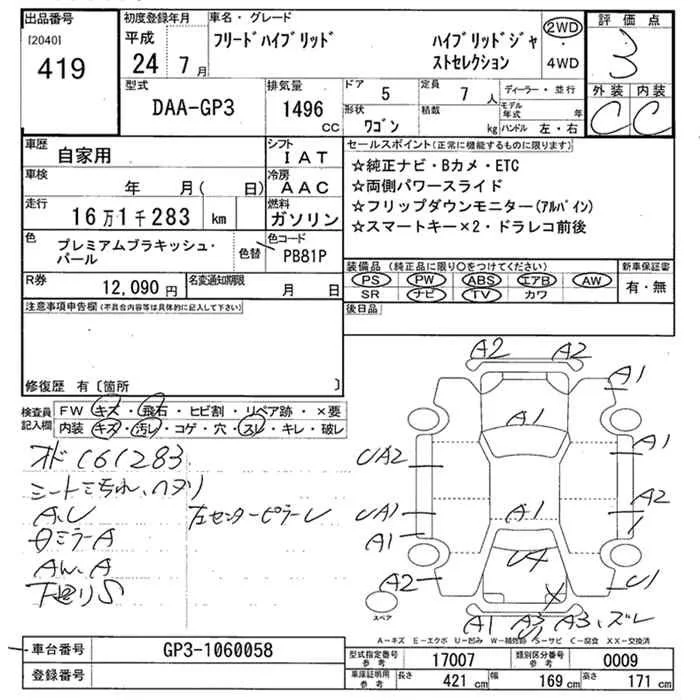 出品番号 初度登録年月 車名・グレード 評価点
[2040] 平成 フリードハイブリッド ハイブリッドジャ 2WD
419 24 7月 ストセレクション ・ 4WD 3
型式 排気量 ドア 5 定員 7人 ディーラー・並行 外装 内装
DAA-GP3 1496cc 形状 ワゴン 積載 kg モデル年式 年 ハンドル 左・右 C C
車歴 自家用 シフト IAT セールスポイント(正常に機能するものに限ります)
車検 年 月( 日) 冷房 AAC ☆純正ナビ・Bカメ・ETC
走行 16万1千283 km 燃料 ガソリン ☆両側パワースライド
☆フリップダウンモニター(アルパイン)
色 プレミアムブラキッシュ・パール 色替 色コード PB81P ☆スマートキー×2・ドラレコ前後
R券 12,090円 名変通知期限 月 日 装備品(純正品に限り○をつけてください) 新車保証書
PS PW ABS エアB AW 有・無
SR ナビ TV カワ
注意事項申告欄(不具合内容等は具体的に記入して下さい) 後日品
修復歴 有〔箇所 〕
検査員記入欄 FW キズ・飛石・ヒビ割・リペア跡・×要
内装 キズ・汚レ・コゲ・穴・スレ・キレ・破レ
オド161283
シートヨゴれ、ヘタリ
A、U 左センターピラーU
Aw、A
下廻りS
A2 A2
A1
A1
UA2 A1
UA1 A1 A2
A1
U4
A2 U1
スペア
A1 A3 A3、ズレ
A-キズ E-エクボ U-凹み W-補修跡 S-サビ C-腐食 XX-交換済
車台番号 GP3-1060058 型式指定番号 参考 17007 類別区分番号 参考 0009
登録番号 車庫証明用 参考 長さ 421cm 幅 169cm 高さ 171cm